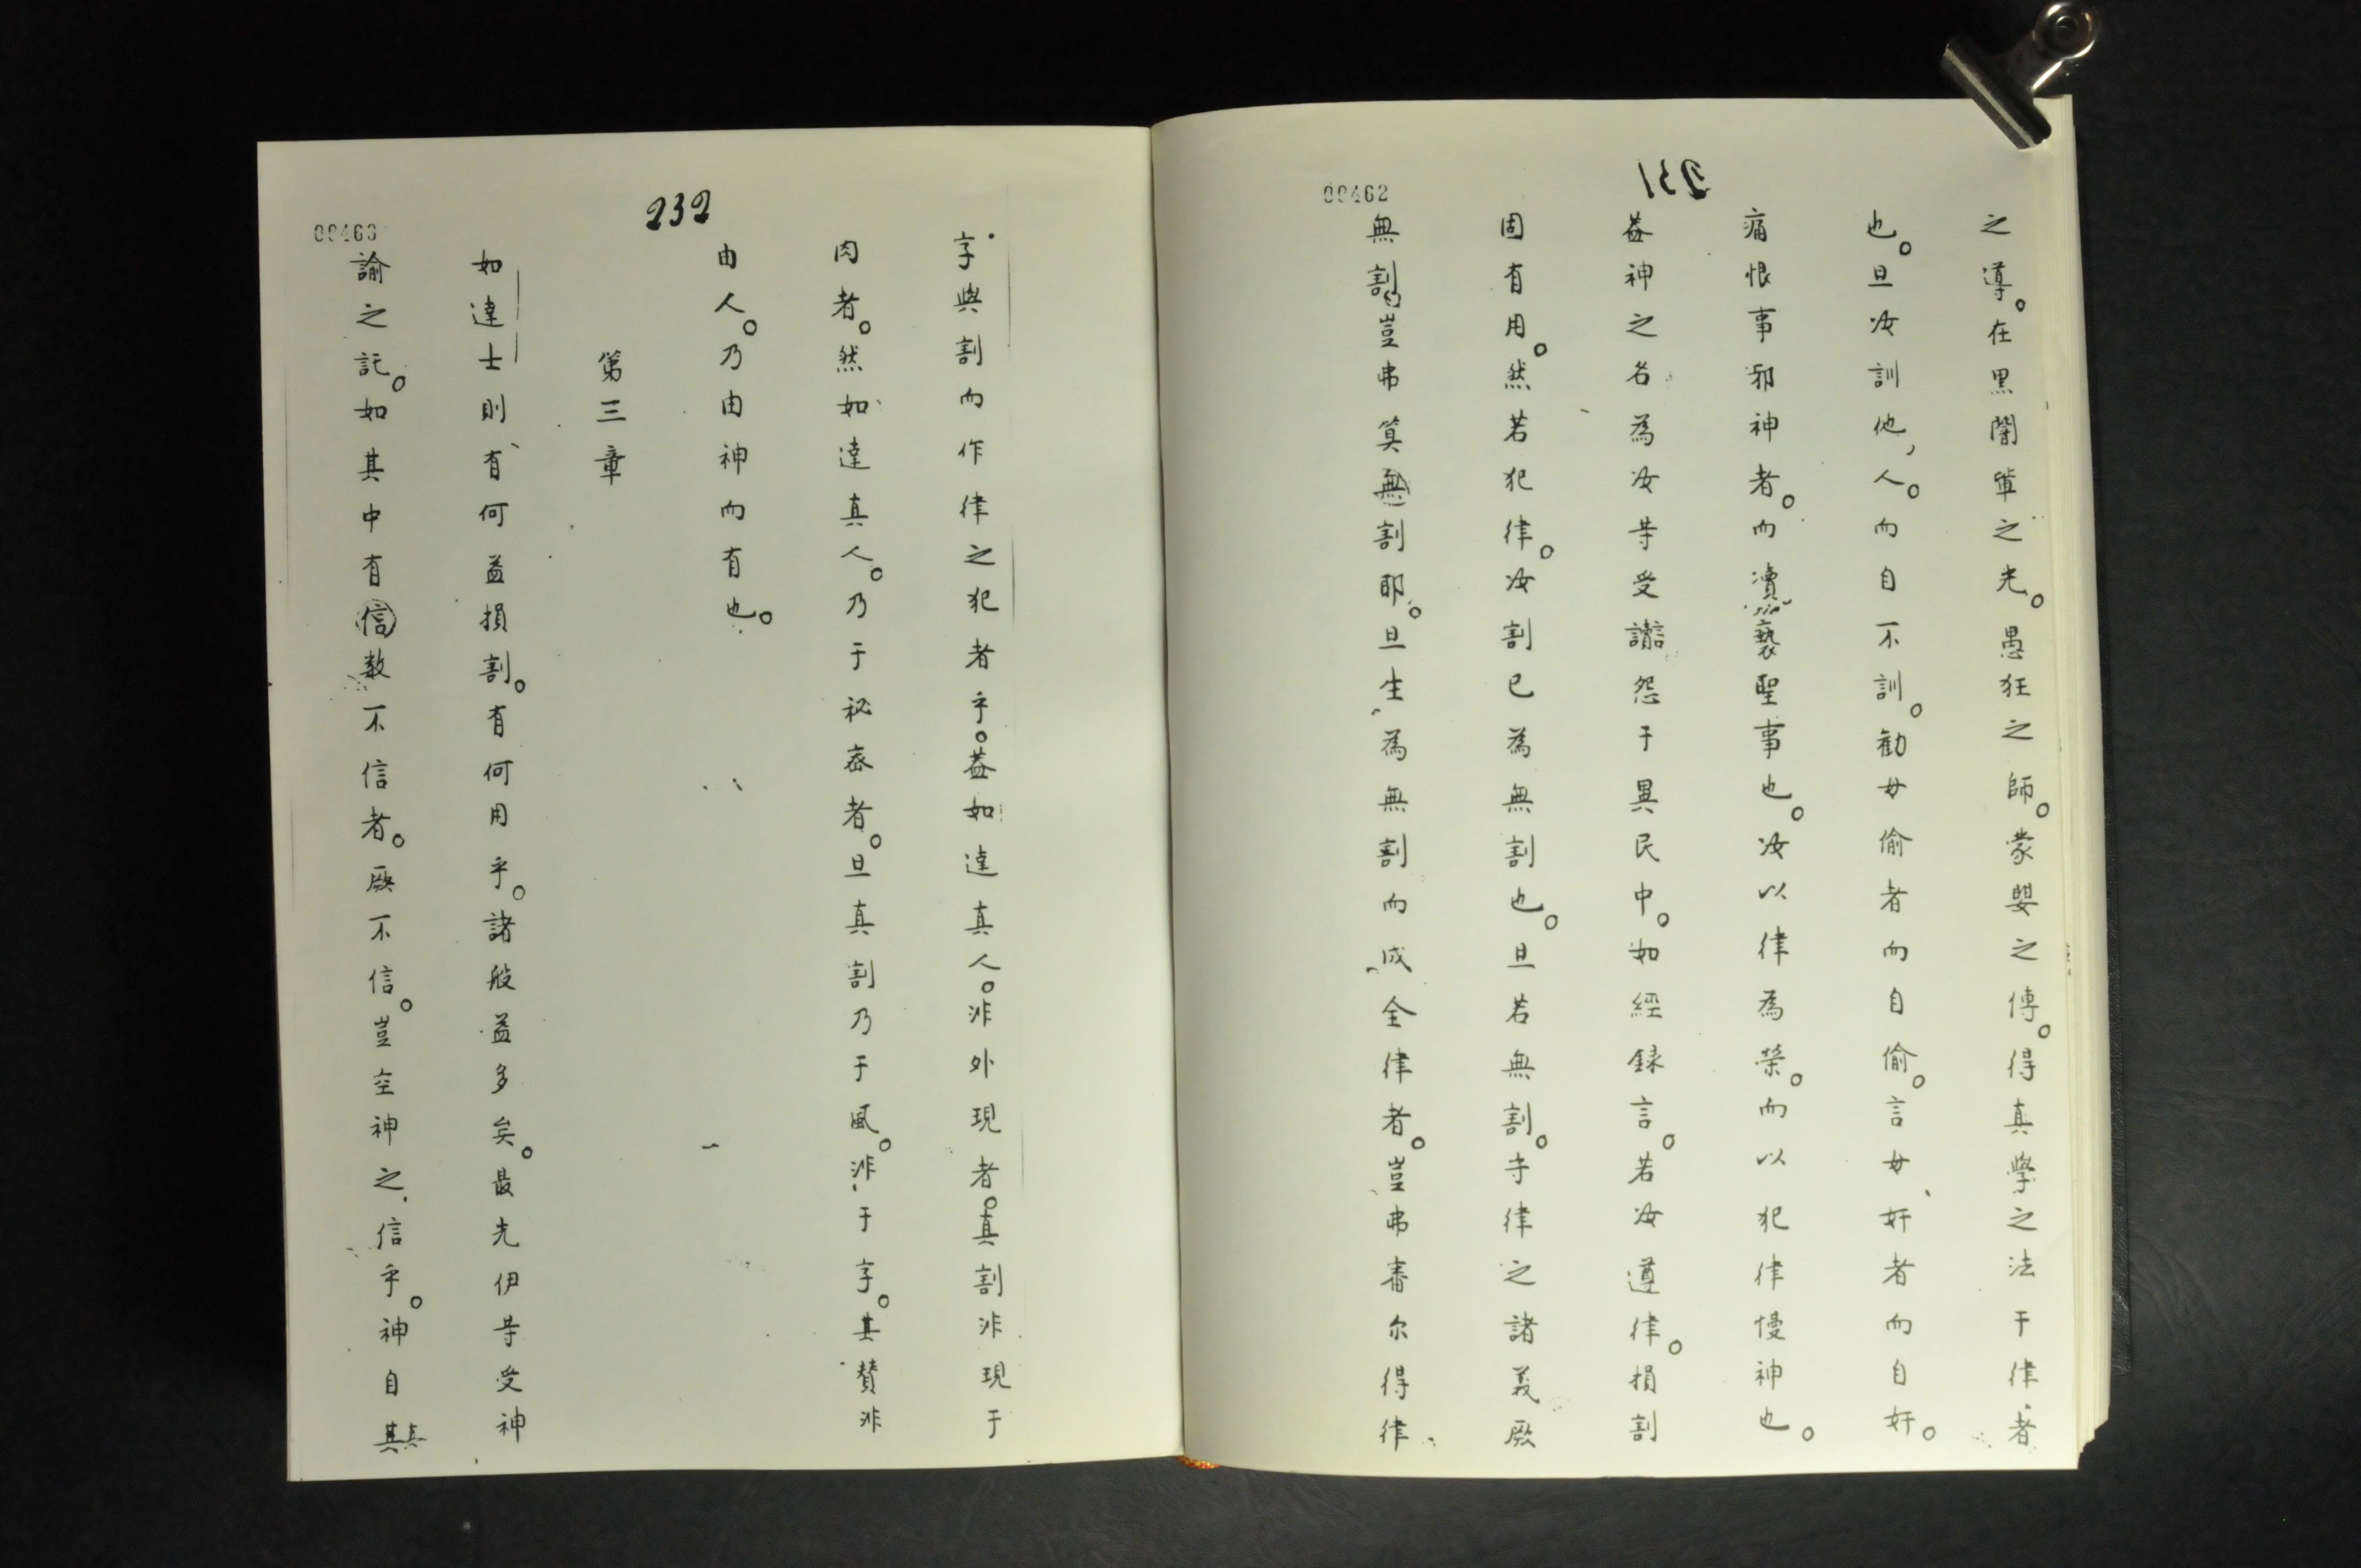 231
00462
之導。在黑闇輩之光。愚狂之師。蒙嬰之傅。得真學之法于律者
也。旦汝訓他人。而自不訓。勸毋偷者而自偷。言毋奸者而自奸。
痛恨事邪神者。而瀆褻聖事也。汝以律為榮。而以犯律慢神也。
葢神之名為汝等受讟怨于異民中。如經録言。若汝遵律。損割
固有用。然若犯律。汝割已為無割也。旦若無割。守律之諸義厥
無割豈弗筭割耶。旦生為無割而成全律者。豈弗審尔得律
232
00463
字與割而作律之犯者乎。葢如達真人。非外現者。真割非現于
肉者。然如達真人。乃于祕密者。旦真割乃于風。非于字。其賛非
由人。乃由神而有也。
第三章
如達士則有何益損割。有何用乎。諸般益多矣。最先伊等受神
諭之託。如其中有信数不信者。厥不信。豈空神之信乎。神自真